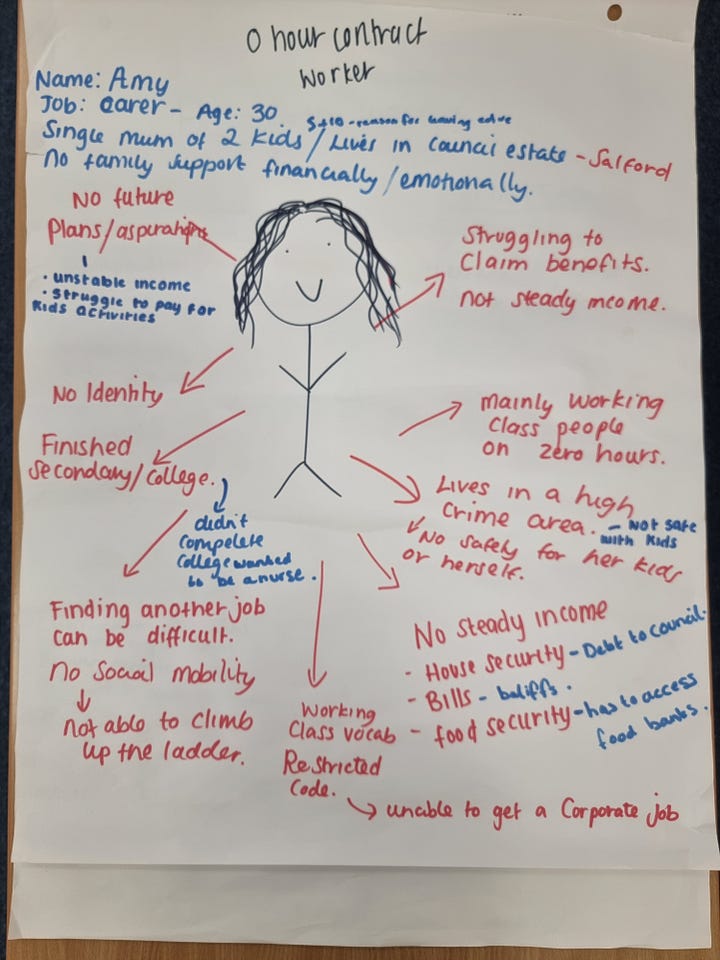 0 hour contract
worker
Name: Amy
Job: carer - Age: 30
5+10 - reason for having
Single mum of 2 kids / Lives in council estate - Salford
No family support financially / emotionally.
No future
Plans/aspirations
· unstable income
· struggle to pay for
kids activities
Struggling to
Claim benefits.
not steady income.
No Identity
Finished
secondary/college.
didn't
Compelete
College wanted
to be a nurse.
mainly working
class people
on zero hours.
Lives in a high
Crime area. - not safe
with kids
No safely for her kids
or herself.
Finding another job
can be difficult.
No social mobility
not able to climb
up the ladder.
Working
Class vocab
Restricted
Code.
unable to get a Corporate job
No steady income
- House security - Debt to council.
- Bills - baliffs.
- food security - has to access
food banks.